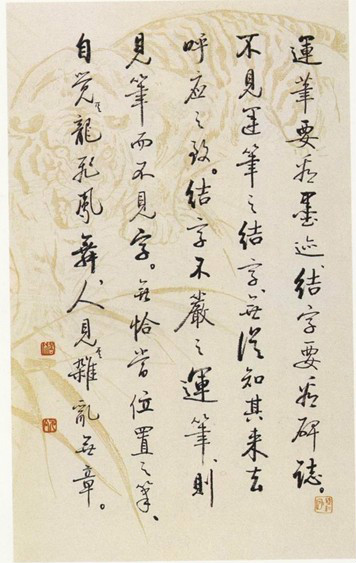 運筆要看墨迹、結字要看碑誌。
不見運筆之結字、無從知其来去
呼应之致。結字不嚴之運筆、則
見筆而不見字。無恰當位置之筆、
自觉其龍飛鳳舞、人見其雜亂無章。